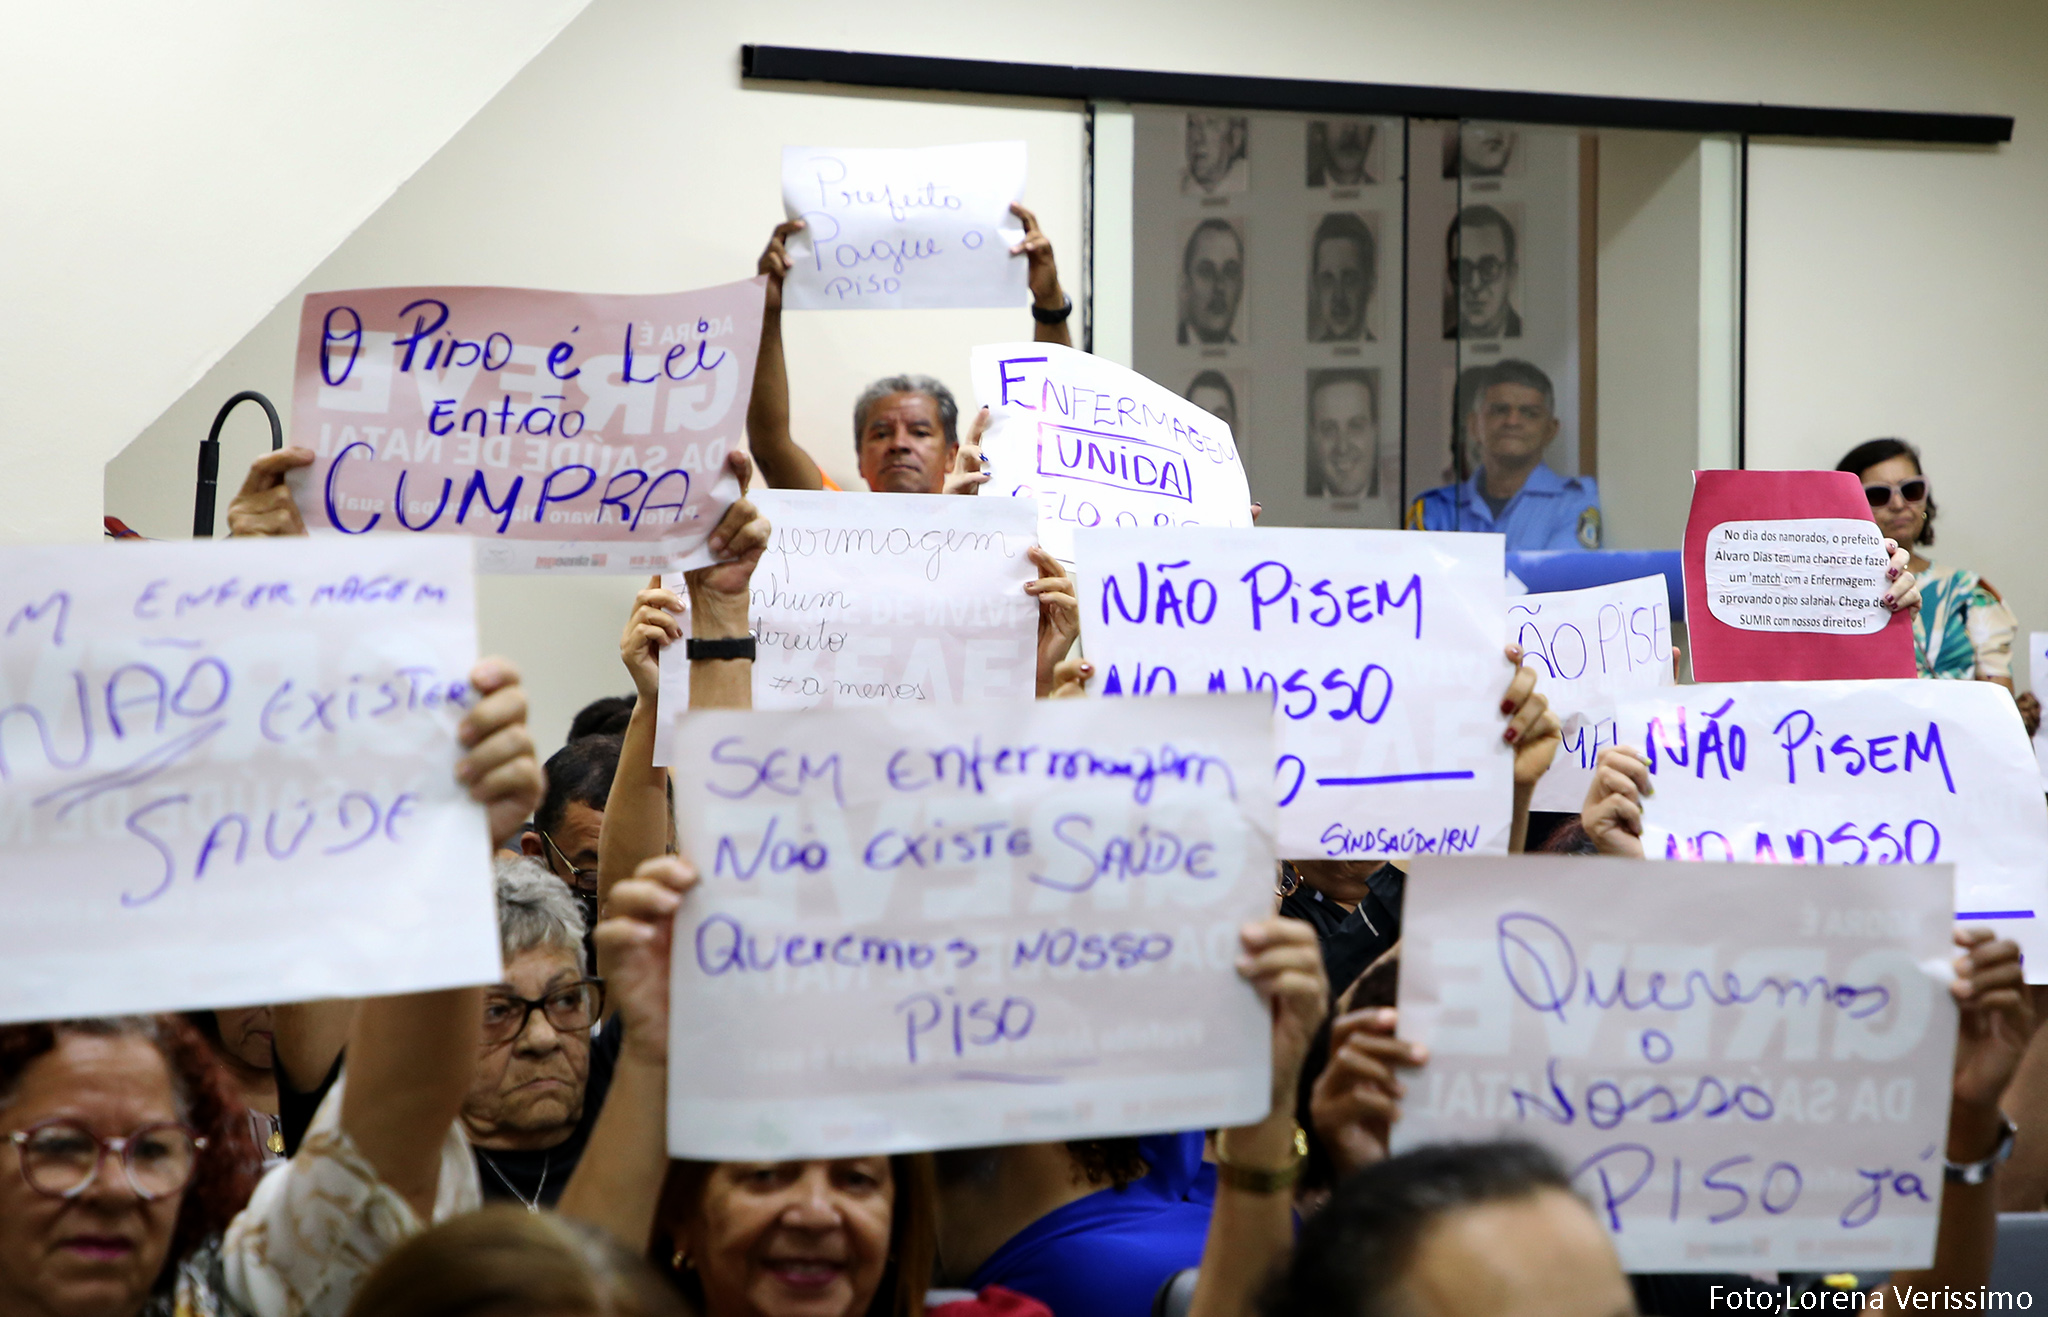 Prefeito
Pague o
piso
O Piso é Lei
Então
CUMPRA.
AGORA É
GREVE
DA SAÚDE DE NATAL
ENFERMAGEM
UNIDA
PELO O
nhum
direito
#a menos
NÃO PISEM
NO NOSSO
SINDSAÚDE/RN
No dia dos namorados, o prefeito
Álvaro Dias tem uma chance de fazer
um 'match' com a Enfermagem:
aprovando o piso salarial. Chega de
SUMIR com nossos direitos!
ÃO PISE
M ENFERMAGEM
NÃO EXISTE
SAÚDE
SEM Enfermagem
Não EXISTE SAÚDE
QUEREMOS NOSSO
PISO
NÃO PISEM
NO NOSSO
Queremos
O
Nosso
PISO já
AGORA É
GREVE
DA SAÚDE DE NATAL
Foto;Lorena Verissimo